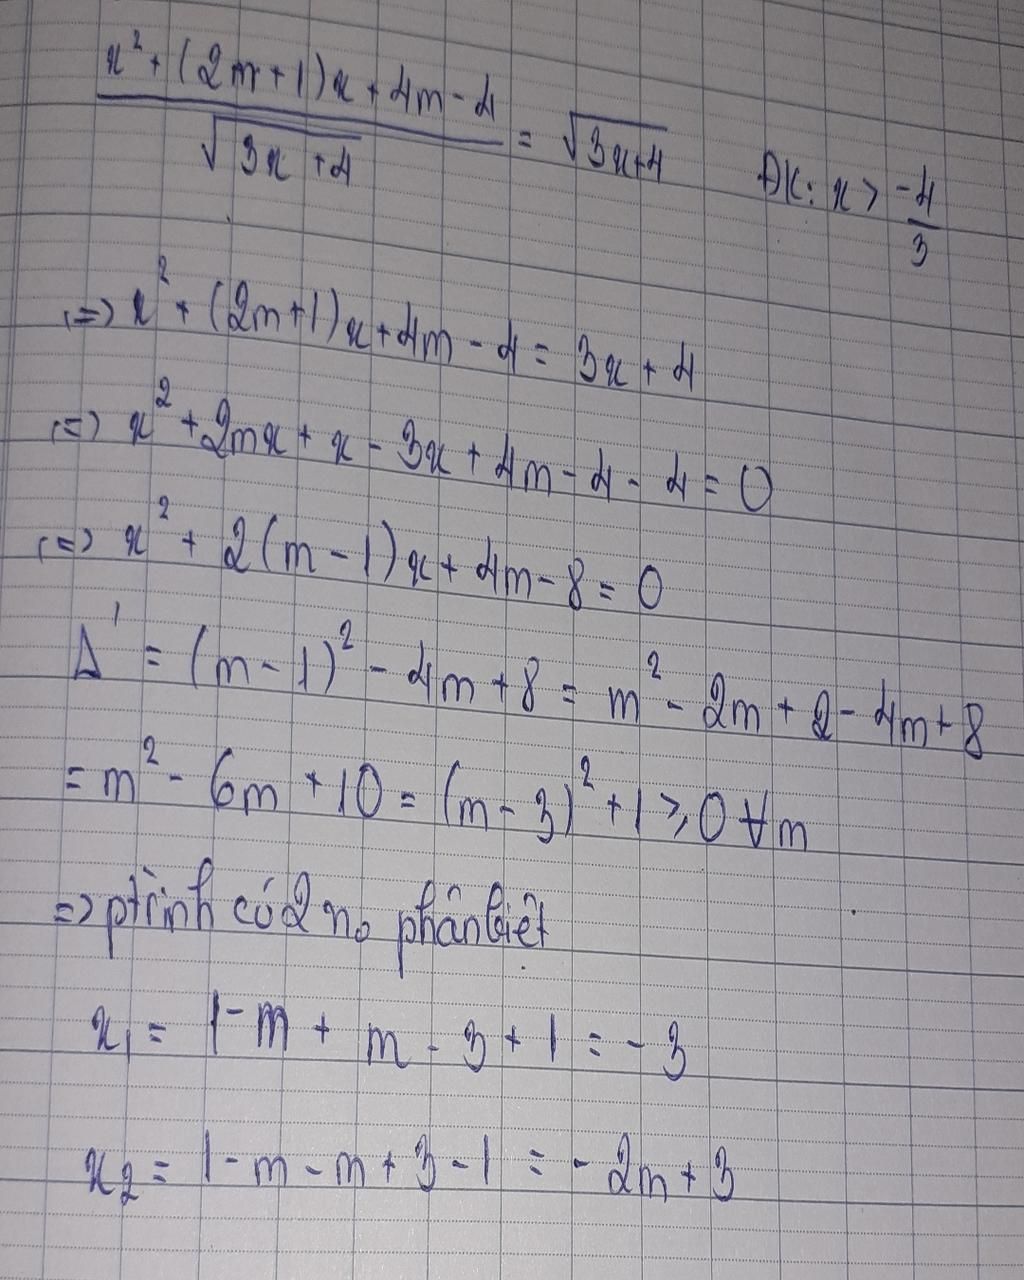 x² + (2m+1)x + 4m - 4 / √3x + 4 = √3x+4 ĐK: x > -4/3
(=) x² + (2m+1)x + 4m - 4 = 3x + 4
(=) x² + 2mx + x - 3x + 4m - 4 - 4 = 0
(=) x² + 2(m-1)x + 4m - 8 = 0
Δ' = (m-1)² - 4m + 8 = m² - 2m + 2 - 4m + 8
= m² - 6m + 10 = (m-3)² + 1 ≥ 0 ∀m
=> ptrình có 2 no phân biệt
x₁ = 1 - m + m - 3 + 1 = -3
x₂ = 1 - m - m + 3 - 1 = -2m + 3